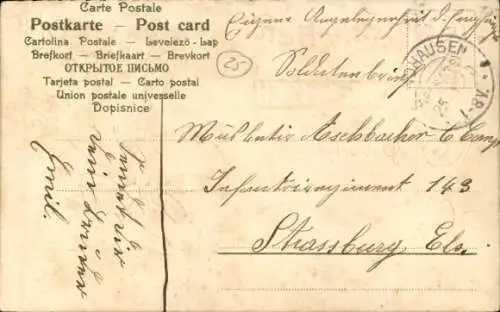 Carte Postale
Postkarte - Post card
Cartolina Postale - Levelező-Lap
Brefkort - Briefkaart - Brevkort
ОТКРЫТОЕ ПИСЬМО
Tarjeta postal - Carto postal
Union postale universelle
Dopisnice
25
Eigene Angelegenheit d. Empfängers
Soldatenbrief
HAUSEN
25
1-8V.
Musketier Aschbacher 6 Comp
Infantrieregiment 143
Strassburg Els.
Dein Bruder
Emil.